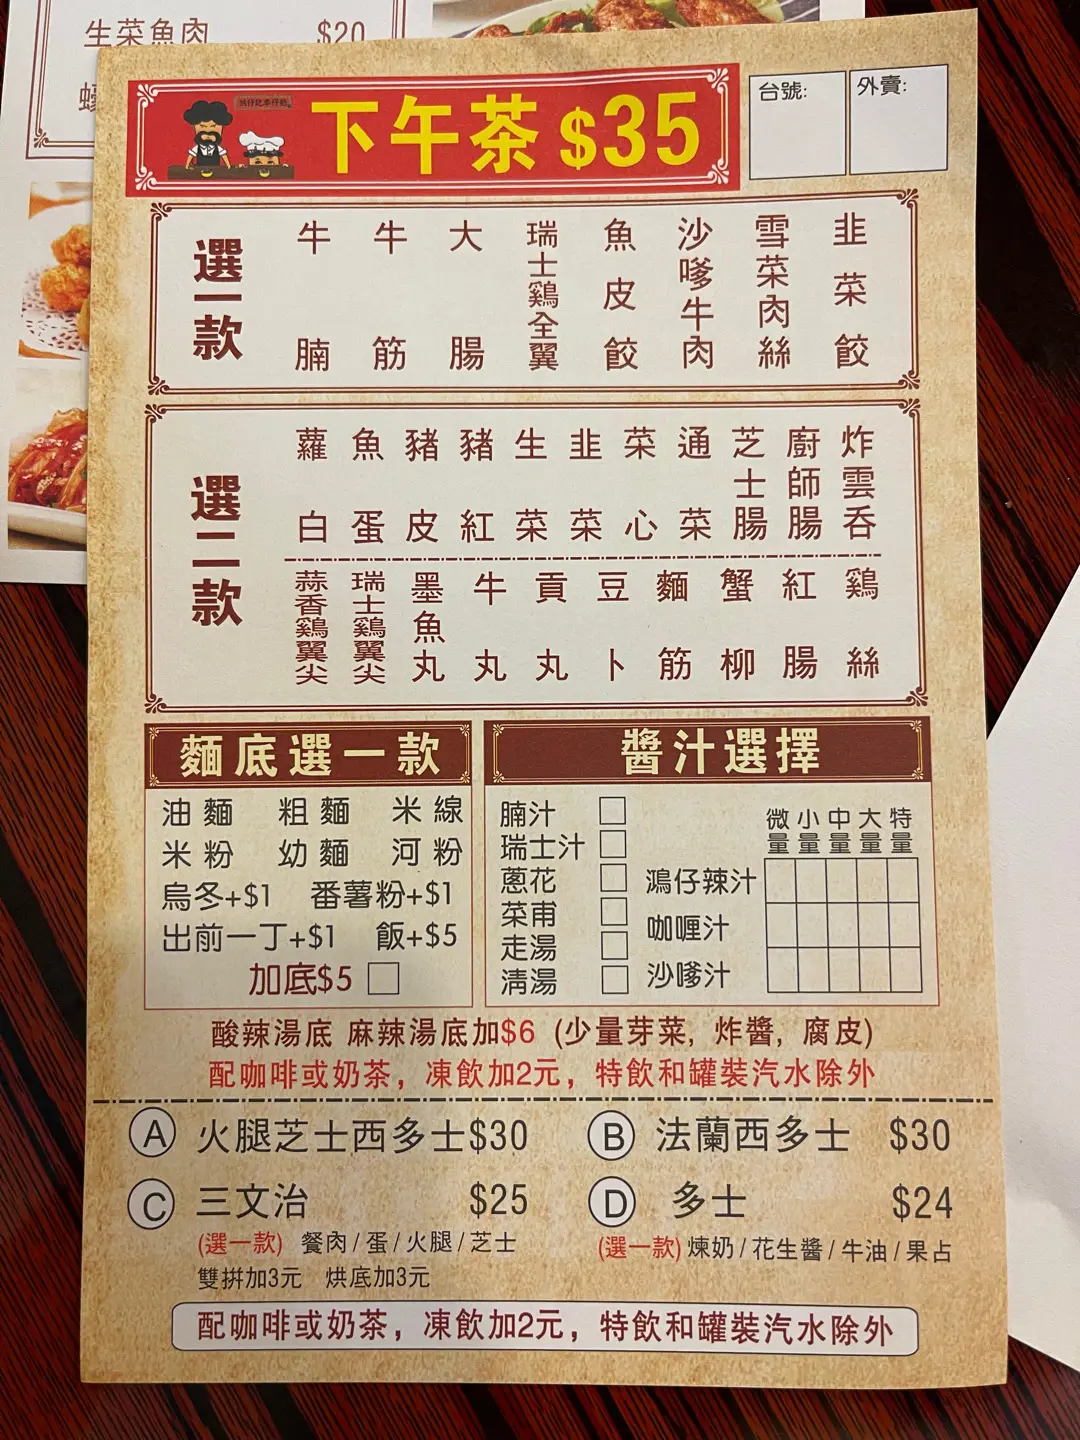 生菜魚肉 $20
下午茶 $35
台號:
外賣:
選一款
牛腩
牛筋
大腸
瑞士鷄全翼
魚皮餃
沙嗲牛肉
雪菜肉絲
韭菜餃
選二款
蘿白
魚蛋
豬皮
豬紅
生菜
韭菜
菜心
通菜
芝士腸
廚師腸
炸雲呑
蒜香鷄翼尖
瑞士鷄翼尖
墨魚丸
牛丸
貢丸
豆卜
麵筋
蟹柳
紅腸
鷄絲
麵底選一款
油麵 粗麵 米線
米粉 幼麵 河粉
烏冬+$1 番薯粉+$1
出前一丁+$1 飯+$5
加底$5
醬汁選擇
腩汁
瑞士汁
蔥花
菜甫
走湯
清湯
微量 小量 中量 大量 特量
鴻仔辣汁
咖喱汁
沙嗲汁
酸辣湯底 麻辣湯底加$6 (少量芽菜, 炸醬, 腐皮)
配咖啡或奶茶, 凍飲加2元, 特飲和罐裝汽水除外
A 火腿芝士西多士$30
B 法蘭西多士 $30
C 三文治 $25
(選一款) 餐肉/蛋/火腿/芝士
雙拼加3元 烘底加3元
D 多士 $24
(選一款) 煉奶/花生醬/牛油/果占
配咖啡或奶茶, 凍飲加2元, 特飲和罐裝汽水除外